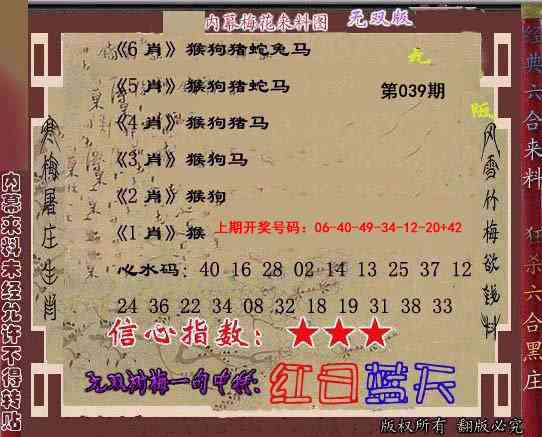 内幕梅花来料图 无双版
《6 肖》猴狗猪蛇兔马
《5 肖》猴狗猪蛇马
第039期
《4 肖》猴狗猪马
《3 肖》猴狗马
《2 肖》猴狗
《1 肖》猴
上期开奖号码：06-40-49-34-12-20+42
心水码：40 16 28 02 14 13 25 37 12
24 36 22 34 08 32 18 19 31 38 33
信心指数：★★★
红日蓝天
寒梅屠庄生肖
风雪竹梅欲钱料
内幕来料未经允许不得转贴
经典六合来料
狂杀六合黑庄
版权所有 翻版必究